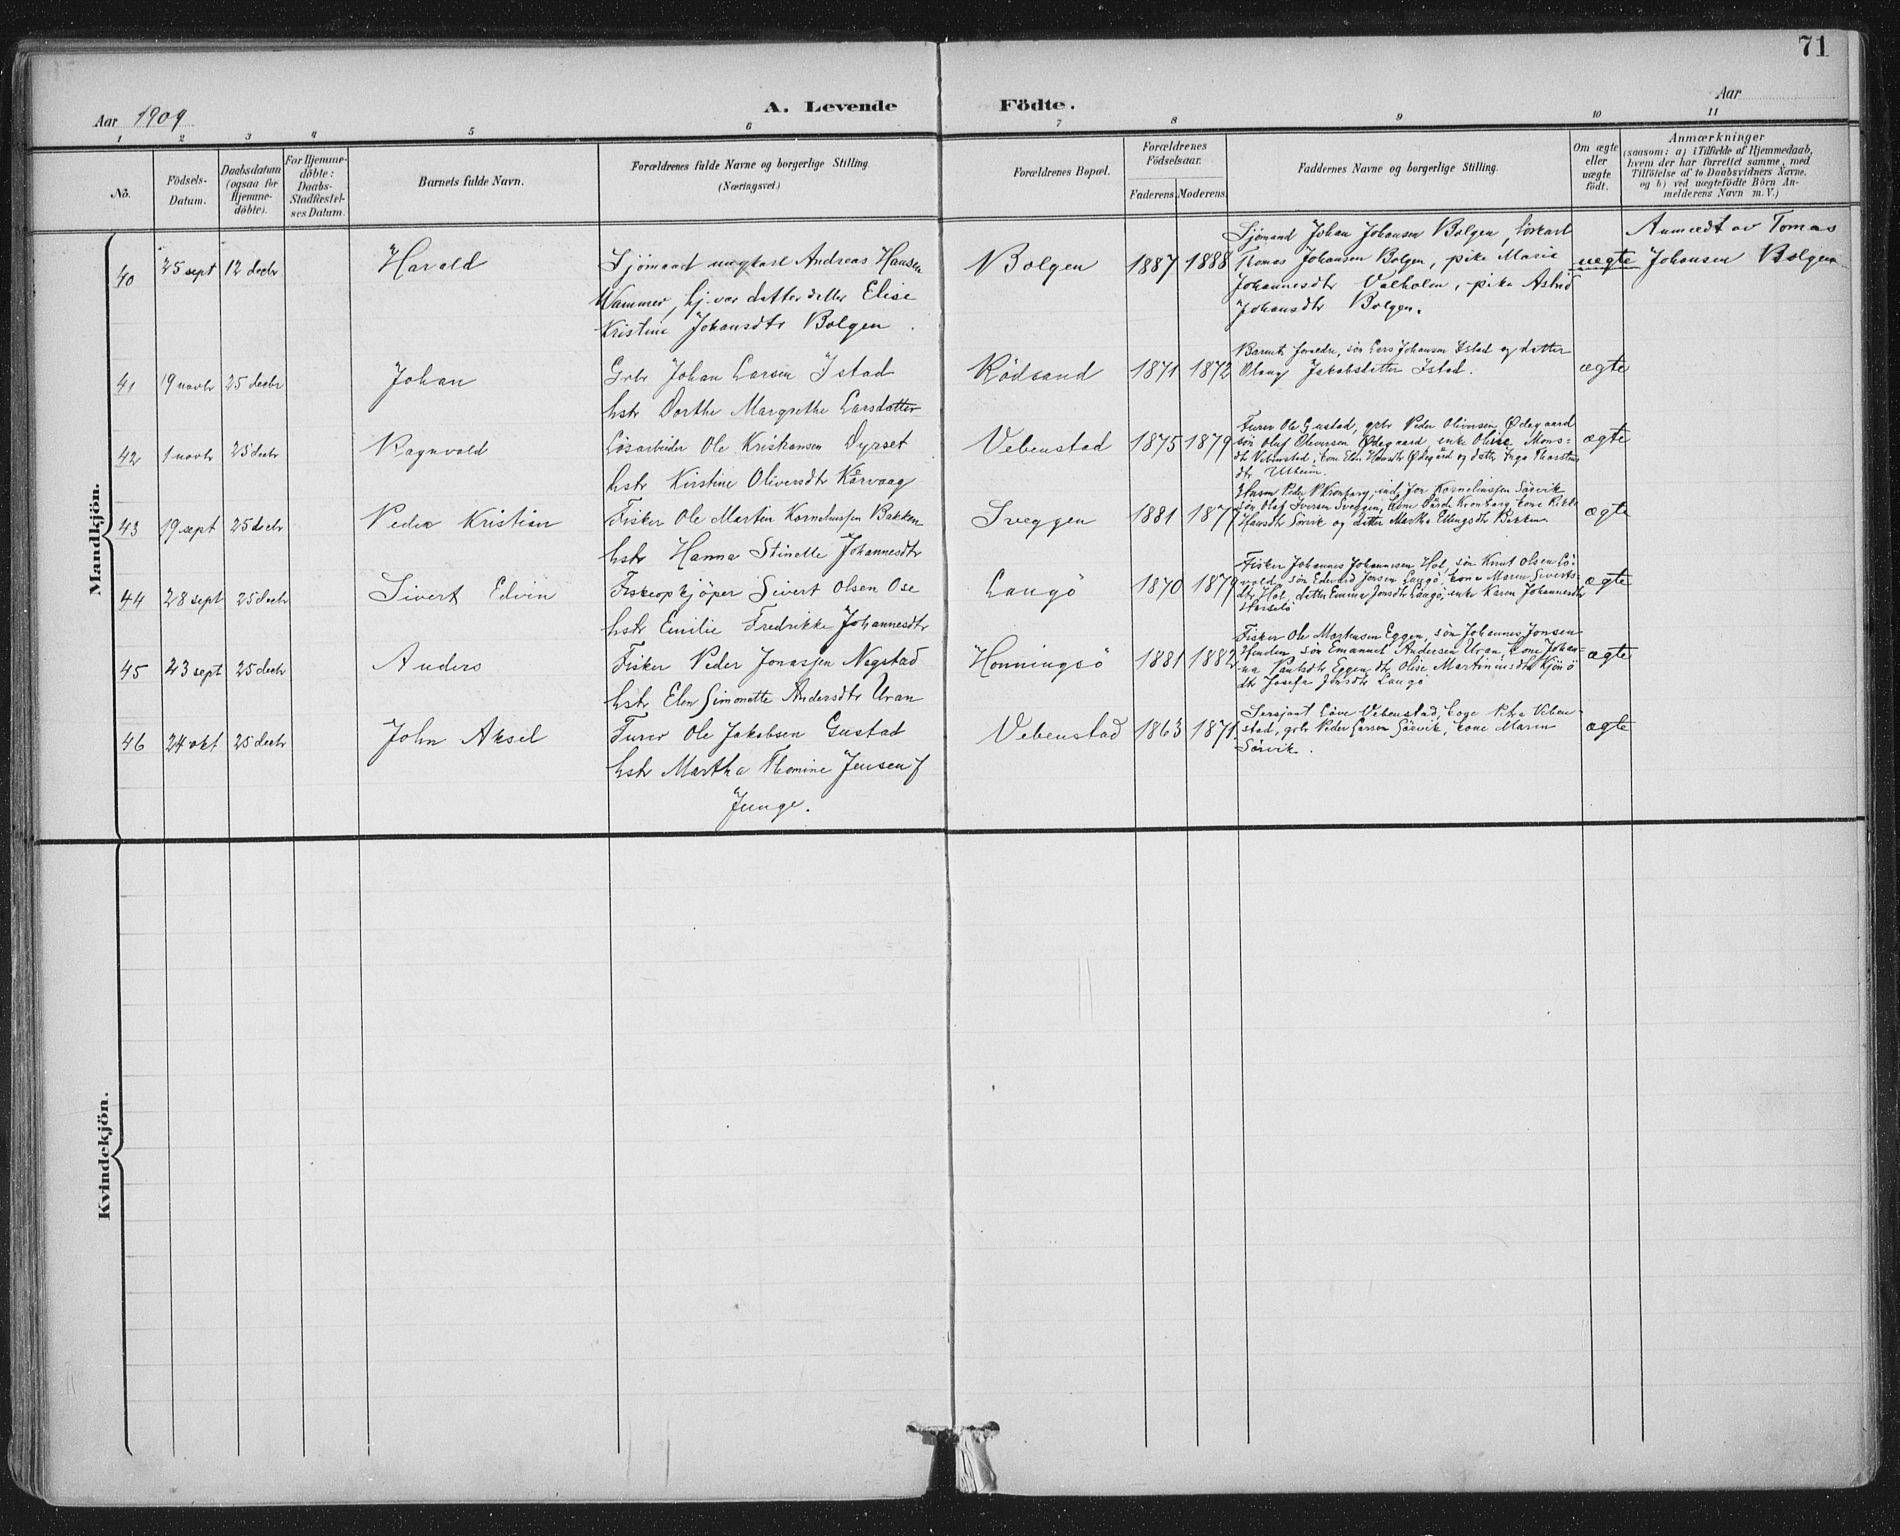 71
Aar 1909
A. Levende Födte.
Aar
1 2 3 4 5 6 7 8 9 10 11
No.
Födsels-Datum.
Daabsdatum (ogsaa for Hjemme-döbte).
For Hjemme-döbte: Daabs-Stadfæstel-ses Datum.
Barnets fulde Navn.
Forældrenes fulde Navne og borgerlige Stilling (Næringsvei.)
Forældrenes Bopæl.
Forældrenes Födselsaar.
Faderens Moderens
Faddernes Navne og borgerlige Stilling.
Om ægte eller uægte födt.
Anmærkninger
(saasom: a) i Tilfælde af Hjemmedaab,
hvem der har forrettet samme, med
Tilföielse af to Daabsvidners Navne,
og b) ved uægtefödte Börn An-
melderens Navn m. V.)
Mandkjön.
40 25 sept 12 decbr Harald
Sjömand ungkarl Andreas Hansen
Wammer, hj.vær datter Elise
Kristine Johansdtr Bolgen.
Bolgen 1887 1888
Sjömand Johan Johansen Bolgen,
Tomas Johansen Bolgen, pike Marie
Johannesdtr Valholm, pike Astrid
Johansdtr Bolgen.
uægte
Anmeldt av Tomas
Johansen Bolgen
41 19 novbr 25 decbr Johan
Grbr Johan Larsen Istad
hstr Dorthe Margrethe Larsdatter
Rödsand 1871 1872
Barnets forældre, sön Lars Johansen Istad og datter
Olaug Jakobsdatter Istad.
ægte
42 1 novbr 25 decbr Ragnvald
Lösarbeider Ole Kristiansen Dyrset
hstr Kirstine Oliversdtr Kårvaag
Vebenstad 1875 1879
Furer Ole Gustad, grbr Peder Oliversen Ødegaard
sön Oluf Oliversen Ødegaard, enke Olive Mons-
dtr Vebenstad, kone Elen Hansdtr Ødegård og datter Inga Thorstens
dtr Utheim.
ægte
43 19 sept 25 decbr Peder Kristian
Fisker Ole Martin Korneliussen Bakken
hstr Hanna Stinette Johannesdtr
Sveggen 1881 1877
Husm Peder P. Kronborg, Korneliussen Sörvik
sön Olaf Iversen Sveggen, kone Kronborg, kone
Hansdtr Sörvik og datter Martha Ellingsdtr Bakken
ægte
44 28 sept 25 decbr Sivert Edvin
Fiskeopkjöper Sivert Olsen Ose
hstr Emilie Fredrikke Johannesdtr
Langö 1870 1879
Fisker Johannes Johannesen Hol, sön Knut Olsen Lö-
vold, sön Edvard Jonsen Langö, kone Maren Siverts-
dtr Hol, datter Emma Jonsdtr Langö, enke Karen Johannesdtr
ægte
45 23 sept 25 decbr Anders
Fisker Peder Jonassen Negstad
hstr Elen Simonette Andersdtr Uran
Honningsö 1881 1882
Fisker Ole Mortensen Eggen, sön Johannes Jonsen
Henden sön Emanuel Andersen Uran, kone Johan-
na Paulsdtr Eggen dtr Olise Martinusdtr Kjönö
dtr Josefa Jonsdtr Langö
ægte
46 24 okt 25 decbr John Aksel
Furer Ole Jakobsen Gustad
hstr Martha Thomine Jensen f
Junge.
Vebenstad 1863 1871
Sersjant Löve Vebenstad, kone Petra Veben-
stad, grbr Peder Larsen Sörvik, kone Maren
Sörvik.
ægte
Kvindekjön.